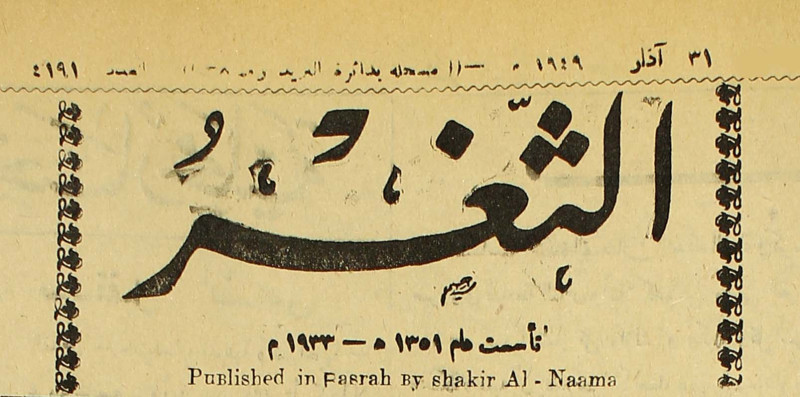 ٣١ آذار ١٩٤٩ مسجلة بدائرة البريد العدد ٤١٩١
الثَّغْرُ
تأسست عام ١٣٥١ ه — ١٩٣٣ م
Published in Fasrah By shakir Al - Naama